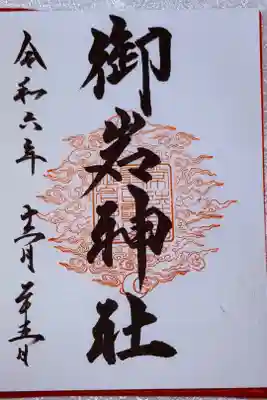 御岩神社
令和六年 十二月 二十五日